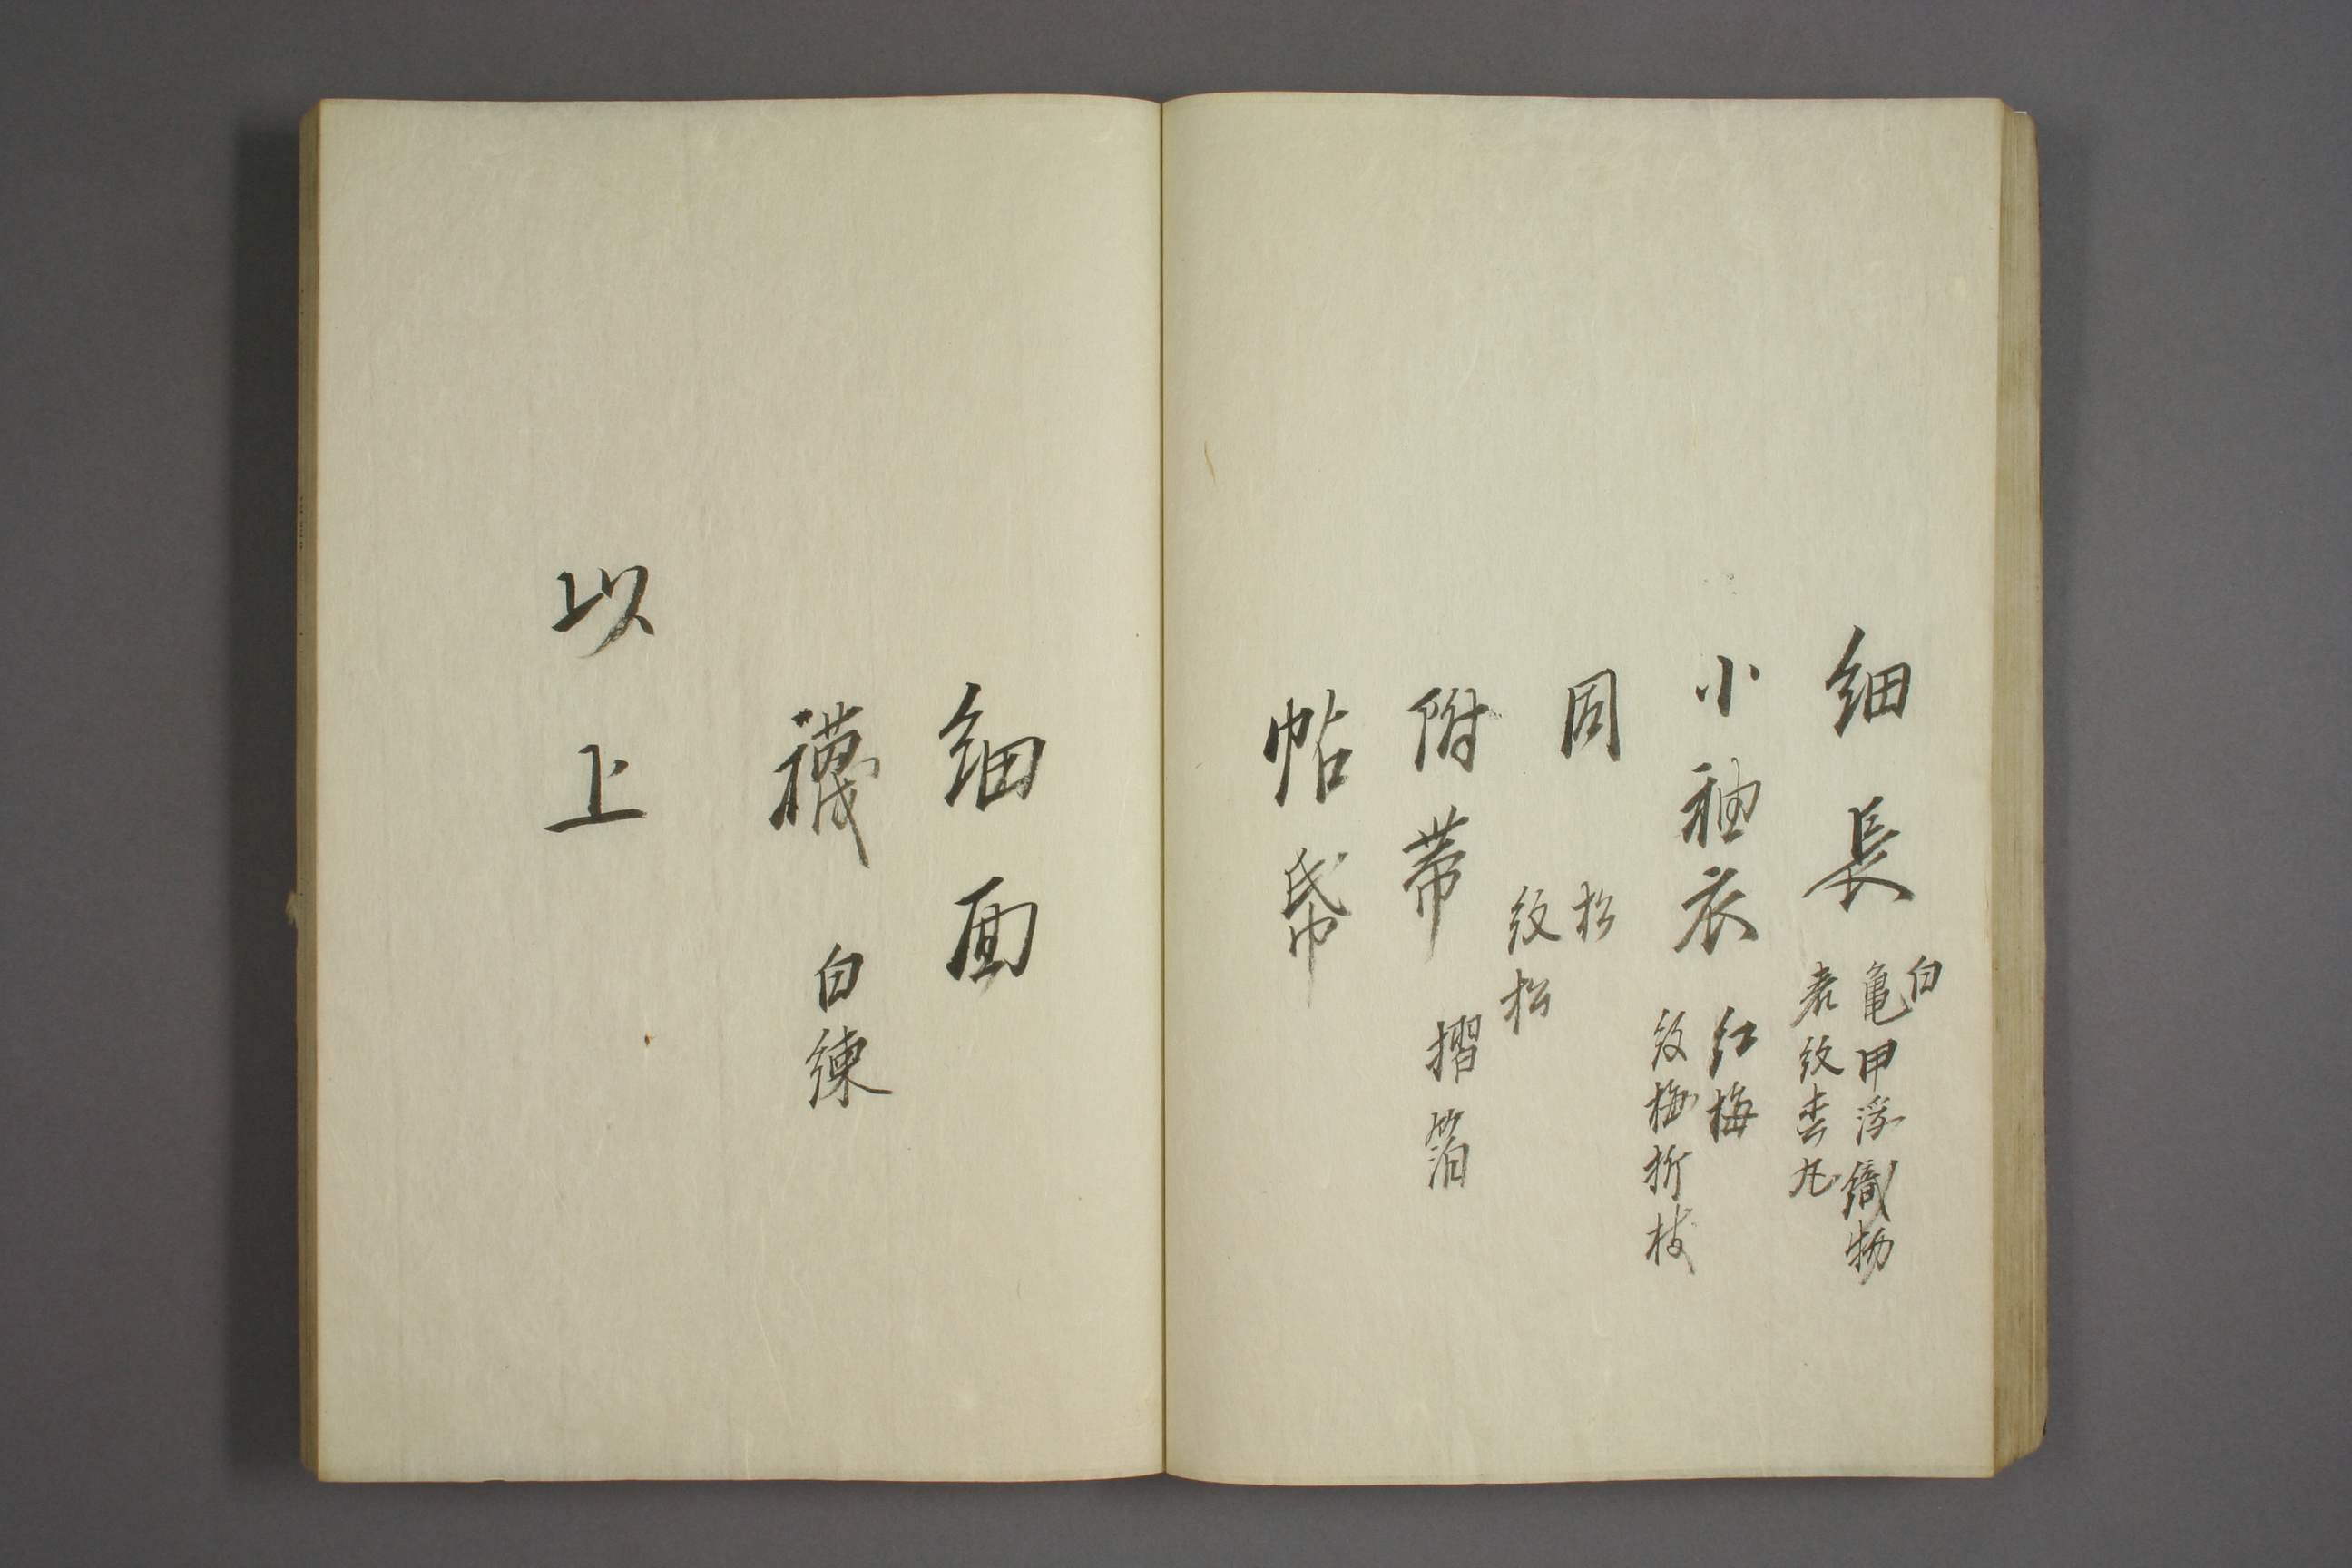 細長
白
亀甲浮織物
表紋松丸
小袖衣
紅梅
紋梅折枝
同
松
紋松
附帯
摺箔
帖帋
細面
襪 白練
以上